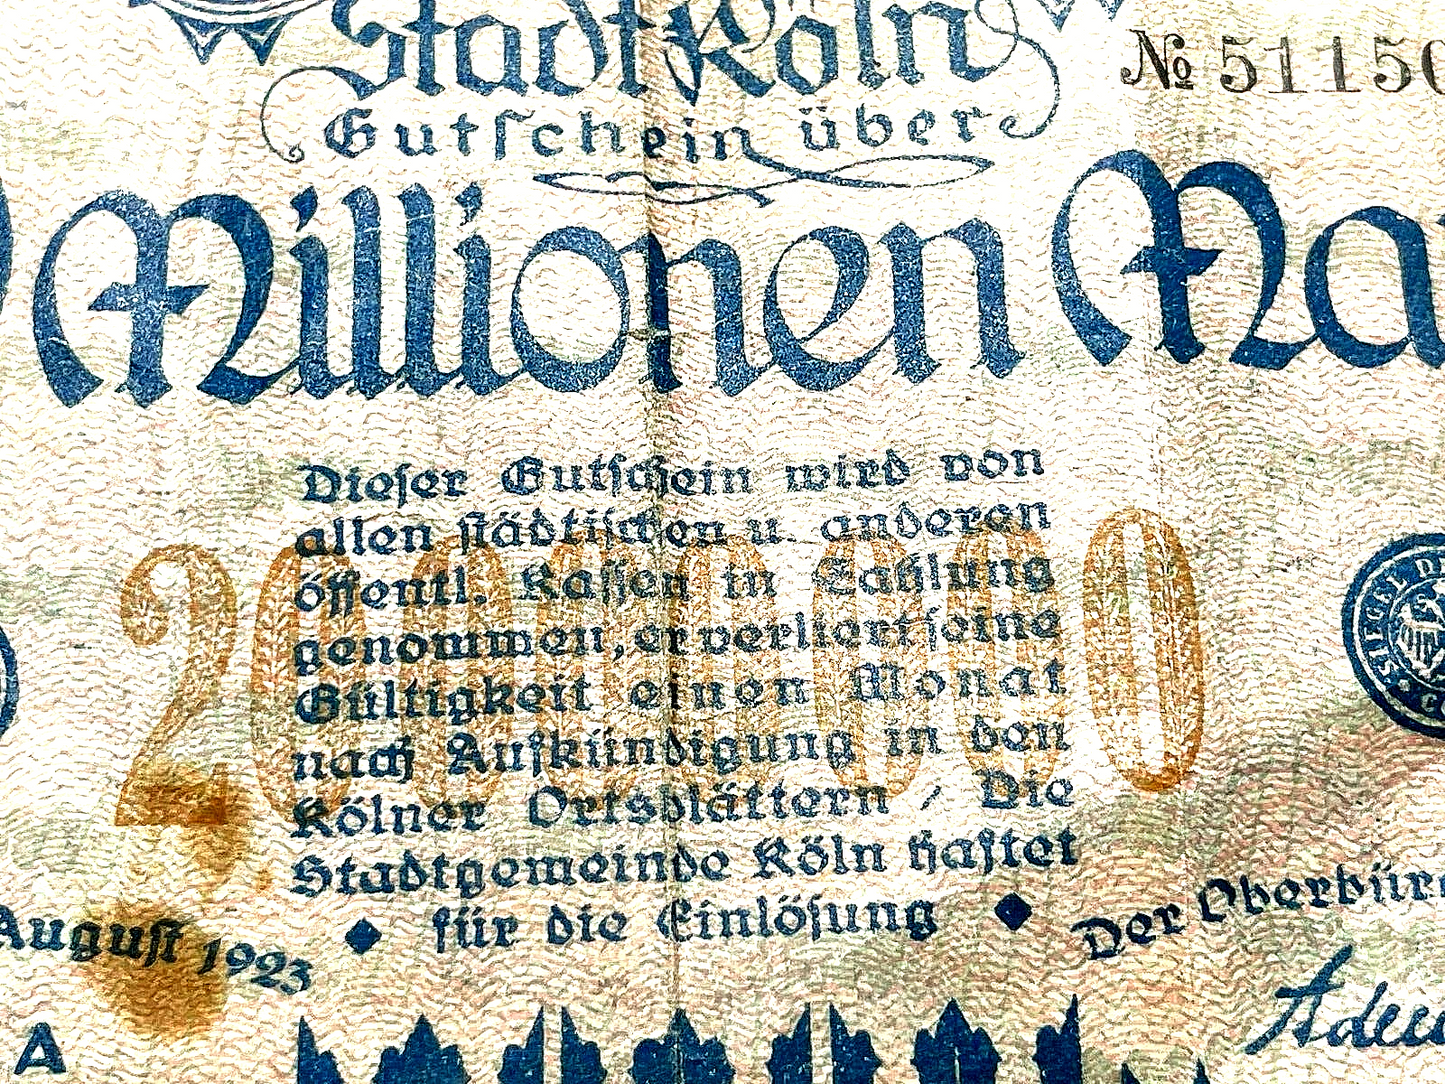 Stadt Köln
№ 51150
Gutschein über
Millionen Ma
Dieser Gutschein wird von
allen städtischen u. anderen
öffentl. Kassen in Zahlung
genommen, er verliert seine
Gültigkeit einen Monat
nach Aufkündigung in den
Kölner Ortsblättern / Die
Stadtgemeinde Köln haftet
für die Einlösung
20000000
SIEGEL DE
August 1923
Der Oberbür
Aden
A